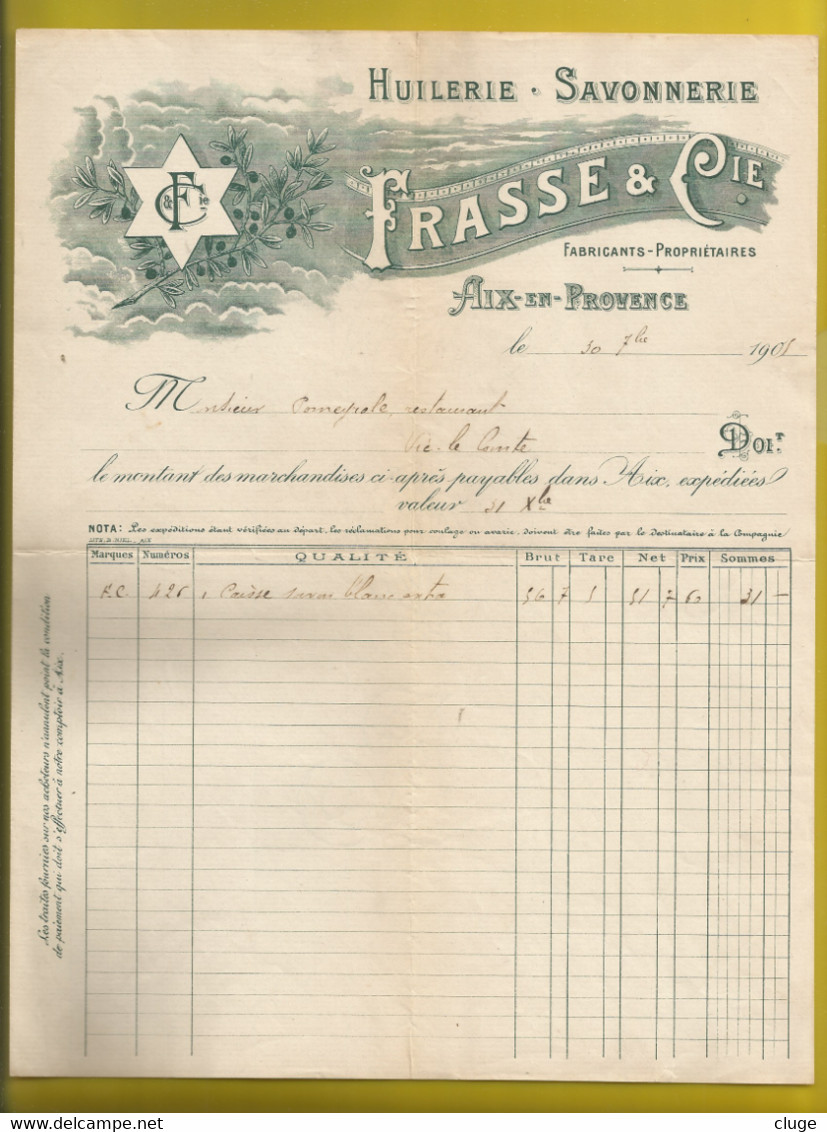 HUILERIE · SAVONNERIE
F & Cie
FRASSE & CIE
FABRICANTS-PROPRIÉTAIRES
AIX-EN-PROVENCE
le 30 7bre 1905
Monsieur Pomeyrole, restaurant
Vic-le Comte DOIT
le montant des marchandises ci-après payables dans Aix, expédiées
valeur 31 Xbre
NOTA: Les expéditions étant vérifiées au départ, les réclamations pour coulage ou avarie, doivent être faites par le Destinataire à la Compagnie
LITH. B. NIEL, AIX
Marques Numéros QUALITÉ Brut Tare Net Prix Sommes
F.C. 426 1 Caisse savon blanc extra 56 7 5 51 7 60 31 —
Les traites fournies sur nos acheteurs n'annulent point la condition
de paiement qui doit s'effectuer à notre comptoir à Aix.
Delcampe.net
cluge